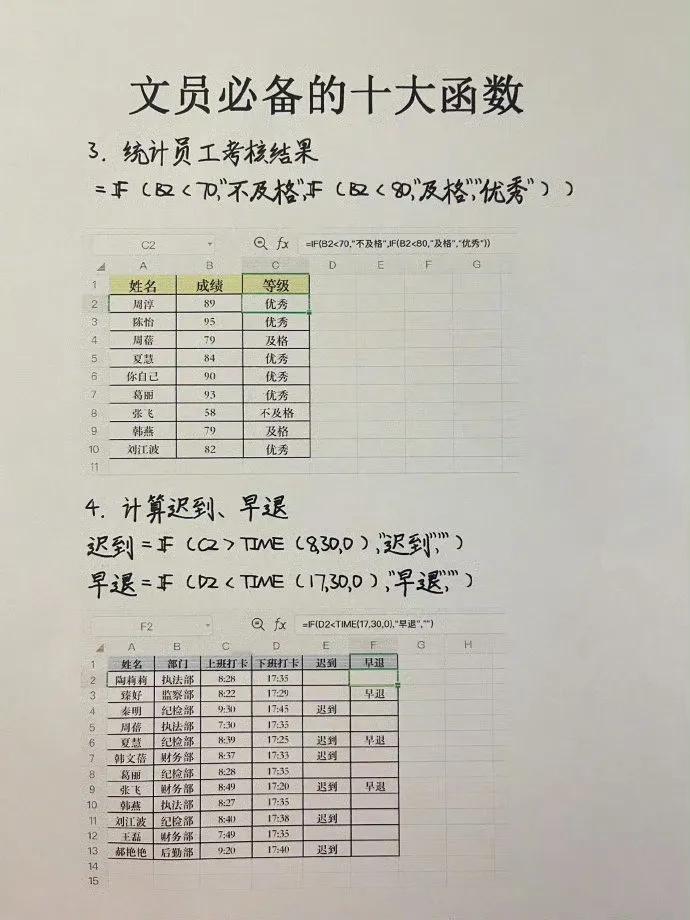 文员必备的十大函数
3. 统计员工考核结果
=IF(B2<70,"不及格",IF(B2<80,"及格","优秀"))
C2 fx =IF(B2<70,"不及格",IF(B2<80,"及格","优秀"))
A B C D E F G
1 姓名 成绩 等级
2 周淳 89 优秀
3 陈怡 95 优秀
4 周蓓 79 及格
5 夏慧 84 优秀
6 你自己 90 优秀
7 葛丽 93 优秀
8 张飞 58 不及格
9 韩燕 79 及格
10 刘江波 82 优秀
11
4. 计算迟到、早退
迟到=IF(C2>TIME(8,30,0),"迟到","")
早退=IF(D2<TIME(17,30,0),"早退","")
F2 fx =IF(D2<TIME(17,30,0),"早退","")
A B C D E F G H
1 姓名 部门 上班打卡 下班打卡 迟到 早退
2 陶莉莉 执法部 8:28 17:35
3 臻好 监察部 8:22 17:29 早退
4 秦明 纪检部 9:30 17:45 迟到
5 周蓓 执法部 7:30 17:35
6 夏慧 纪检部 8:39 17:25 迟到 早退
7 韩文蓓 财务部 8:37 17:33 迟到
8 葛丽 纪检部 8:28 17:35
9 张飞 财务部 8:49 17:20 迟到 早退
10 韩燕 执法部 8:27 17:35
11 刘江波 纪检部 8:40 17:38 迟到
12 王磊 财务部 7:49 17:35
13 郝艳艳 后勤部 9:20 17:40 迟到
14
15